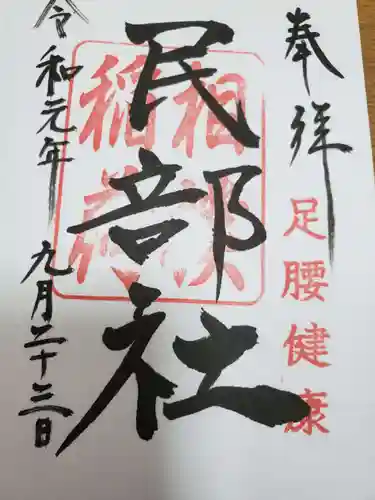 奉拝
足腰健康
民部社
相模
稲荷
令和元年 九月二十三日